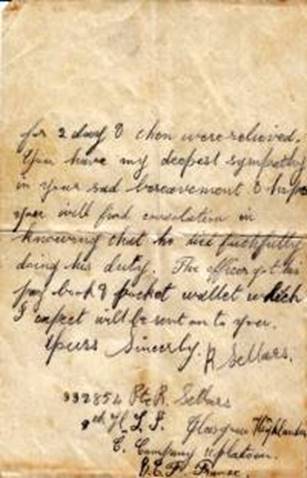 for 2 days & then were relieved.
You have my deepest sympathy
in your sad bereavement & hope
you will find consolation in
knowing that he died faithfully
doing his duty. The officer got his
pay book & pocket wallet which
I expect will be sent on to you.
Yours Sincerly. R Sellars.
332854 Pte R. Sellars
9th H. L. I. Glasgow Highlanders
C. Company Platoon.
B.E.F. France.